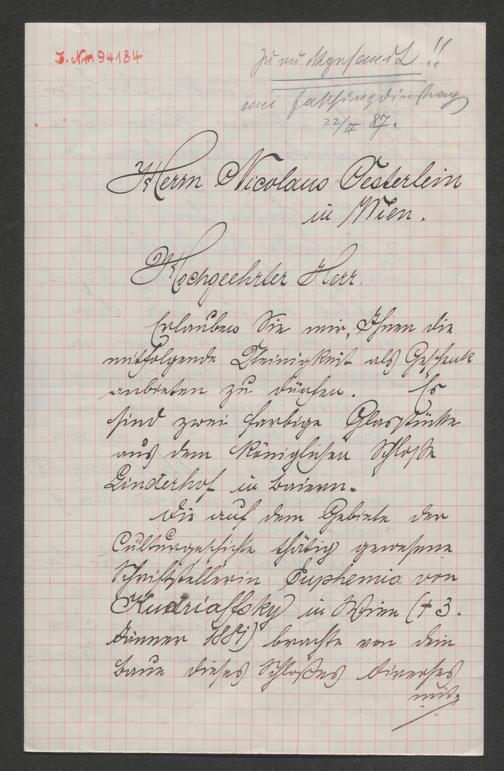 I. Nr. 94134
zurückgesandt!!
am Faschingdienstag
22/II 87.
Herrn Nicolaus Oesterlein
in Wien.
Hochgeehrter Herr
Erlauben Sie mir, Ihnen die
mitfolgende Kleinigkeit als Geschenk
anbieten zu dürfen. Es
sind zwei farbige Glasstücke
aus dem königlichen Schloße
Linderhof in Baiern.
Die auf dem Gebiete der
Culturgeschichte thätig gewesene
Schriftstellerin Euphemia von
Kudriaffsky in Wien († 3.
Jänner 1881) brachte von dem
Baue dieses Schloßes diverses
mit,